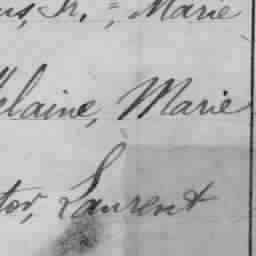 us, Fr. =, Marie
elaine, Marie
tor, Laurent